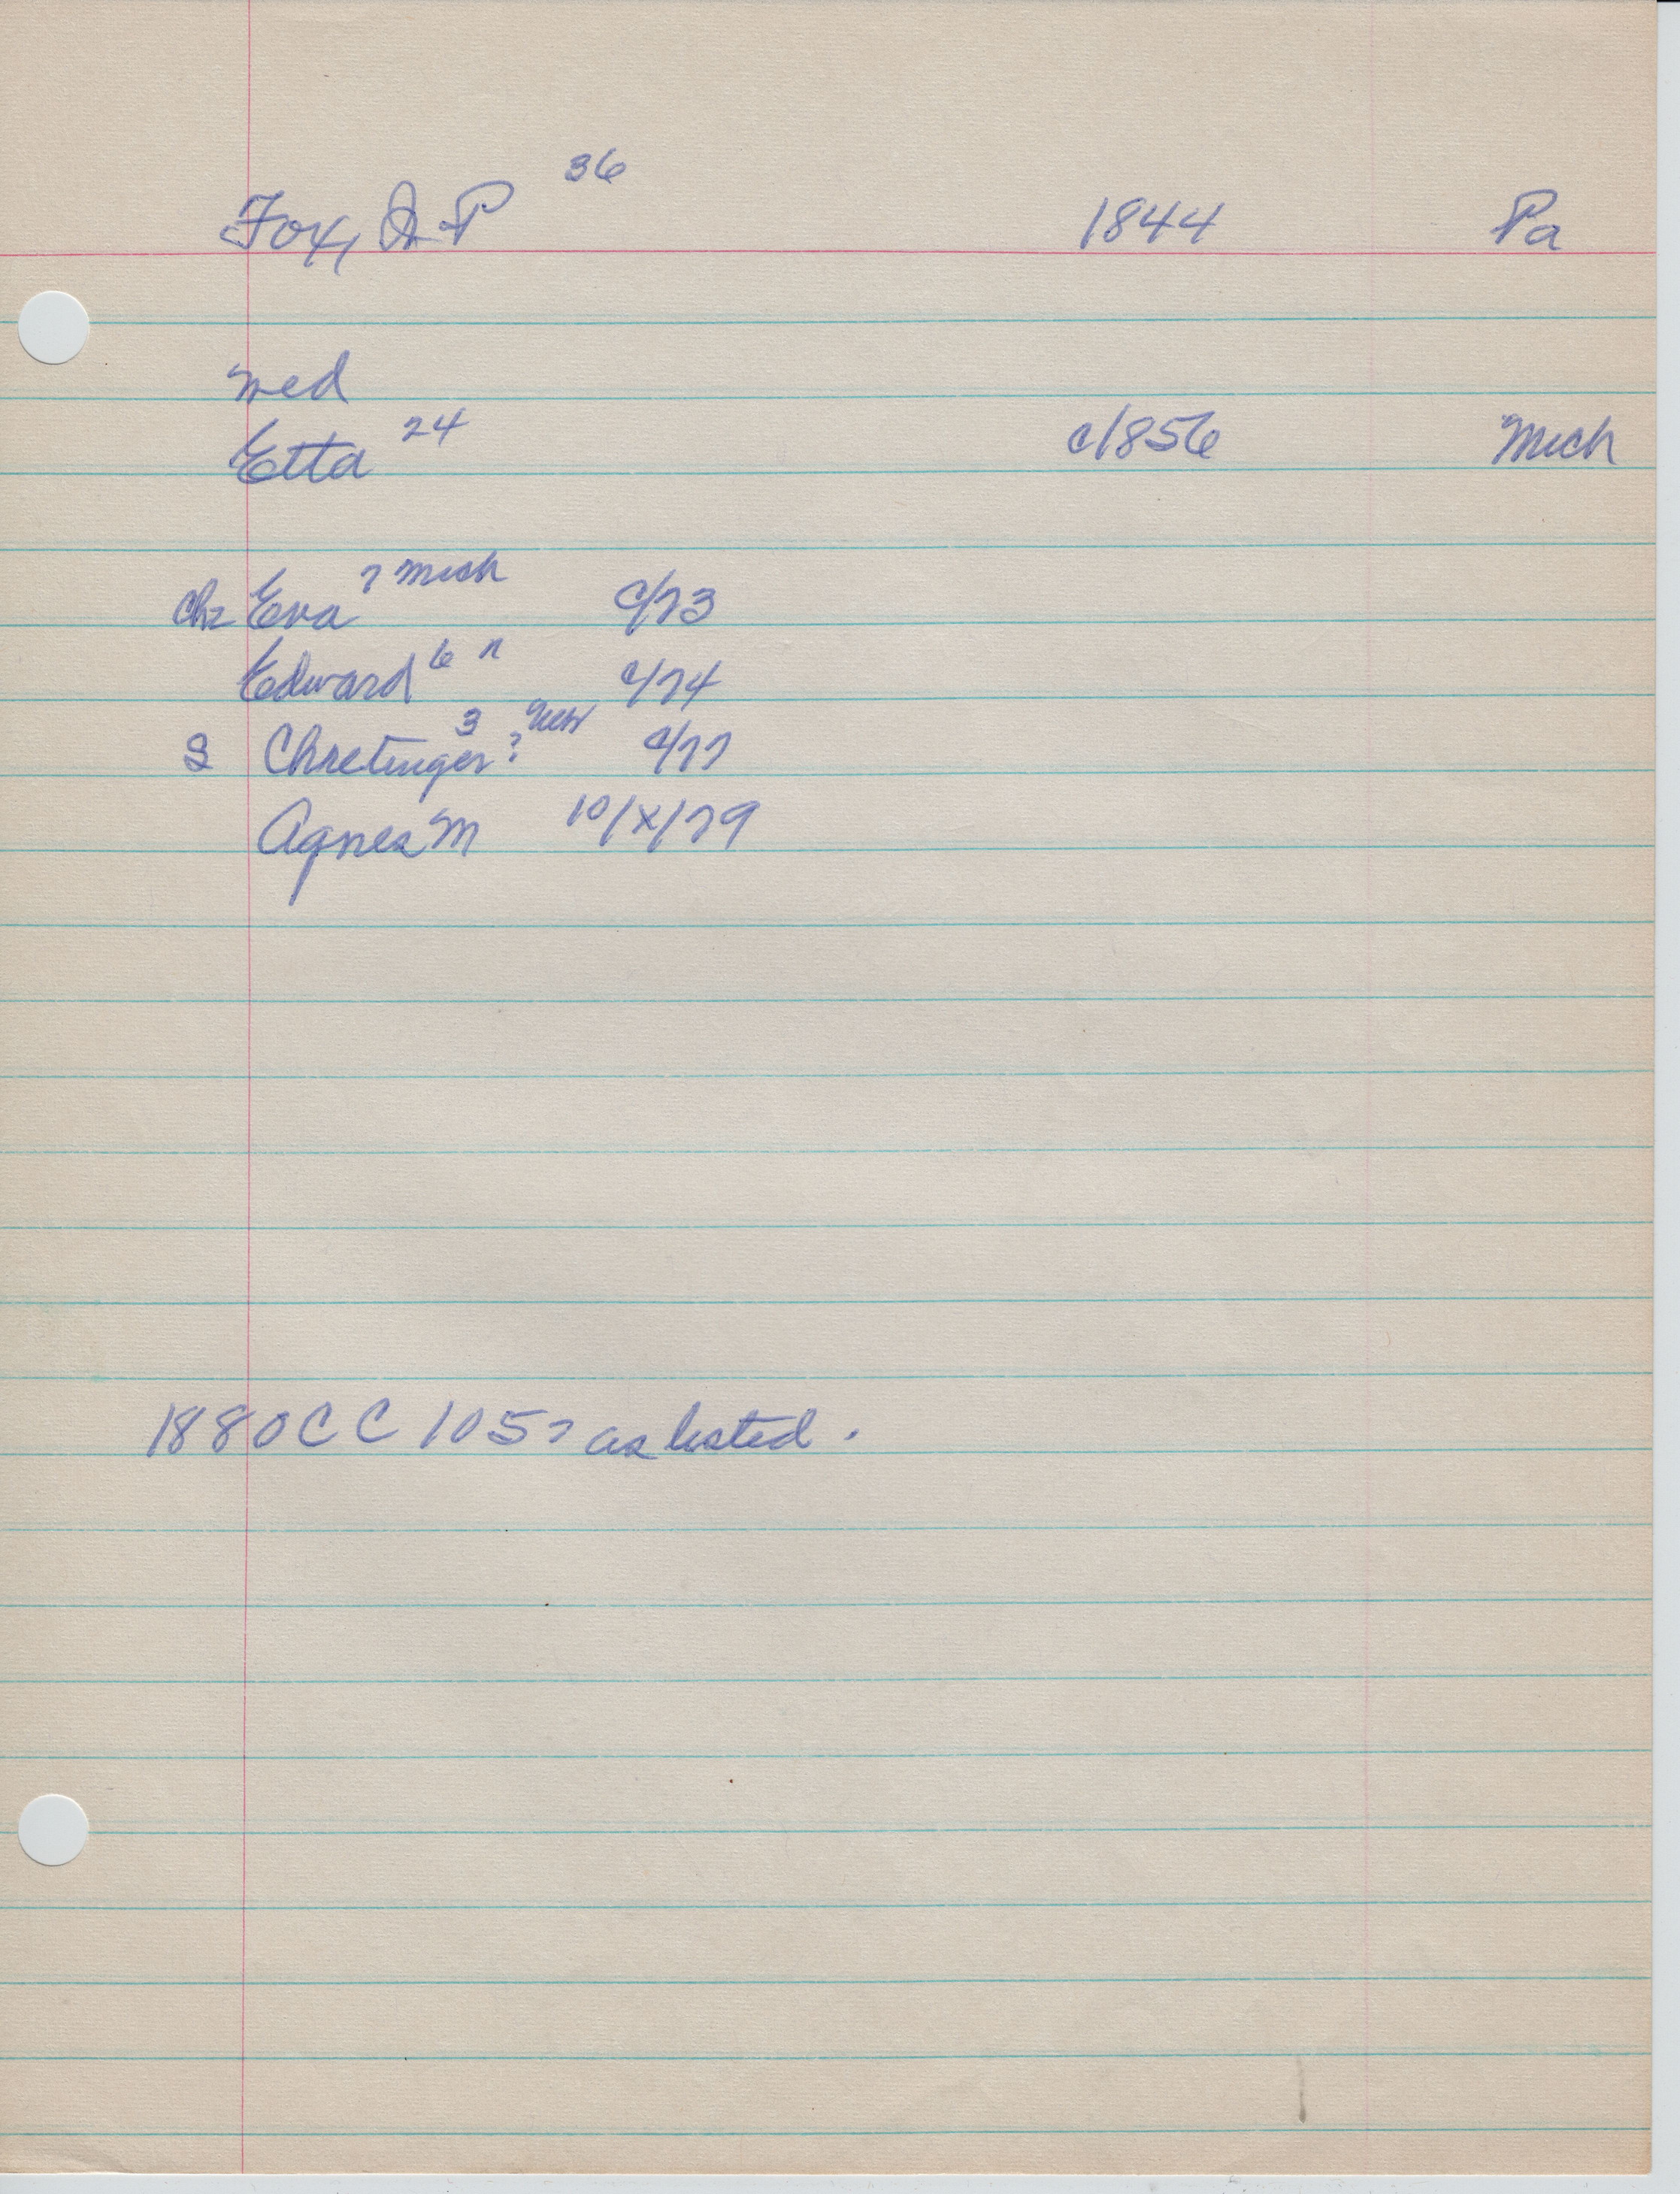 Fox, P 36 1844 Pa
med
Etta 24 c1856 Mich
Ch2 Eva 7 Mich c/73
Edward 6 " c/74
S Chretinger? 3 c/77
Agnes M 10/x/79
1880 CC 1057 as listed.